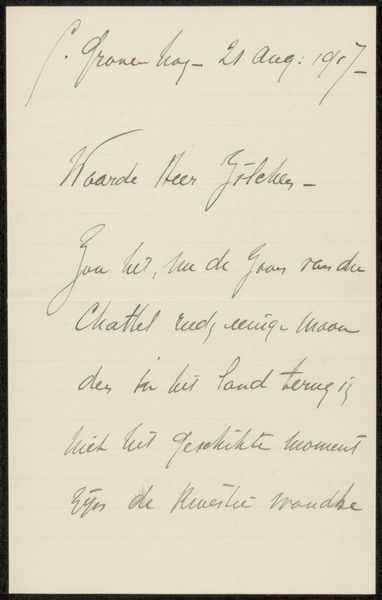 s' Gravenhage 21 Aug: 1917
Waarde Heer Zilcken
Zou het, nu de Graaf van den
Chattel sinds eenige maan
den in het land terug is
niet het geschikte moment
zijn de kwestie